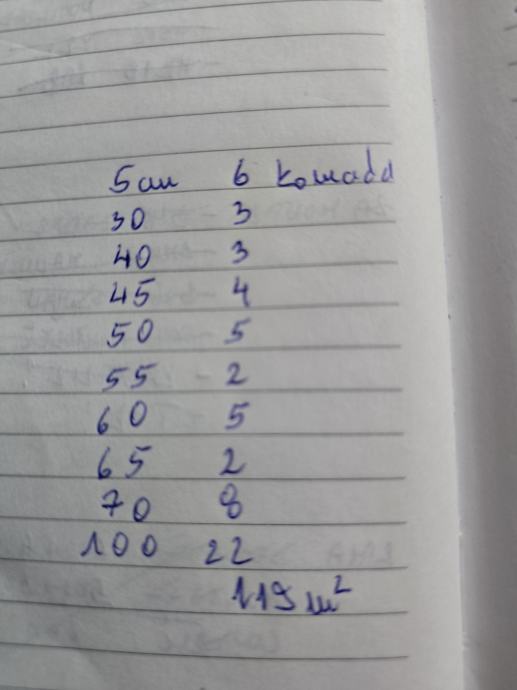 5 см 6 комада
30 3
40 3
45 4
50 5
55 2
60 5
65 2
70 8
100 22
119 м²